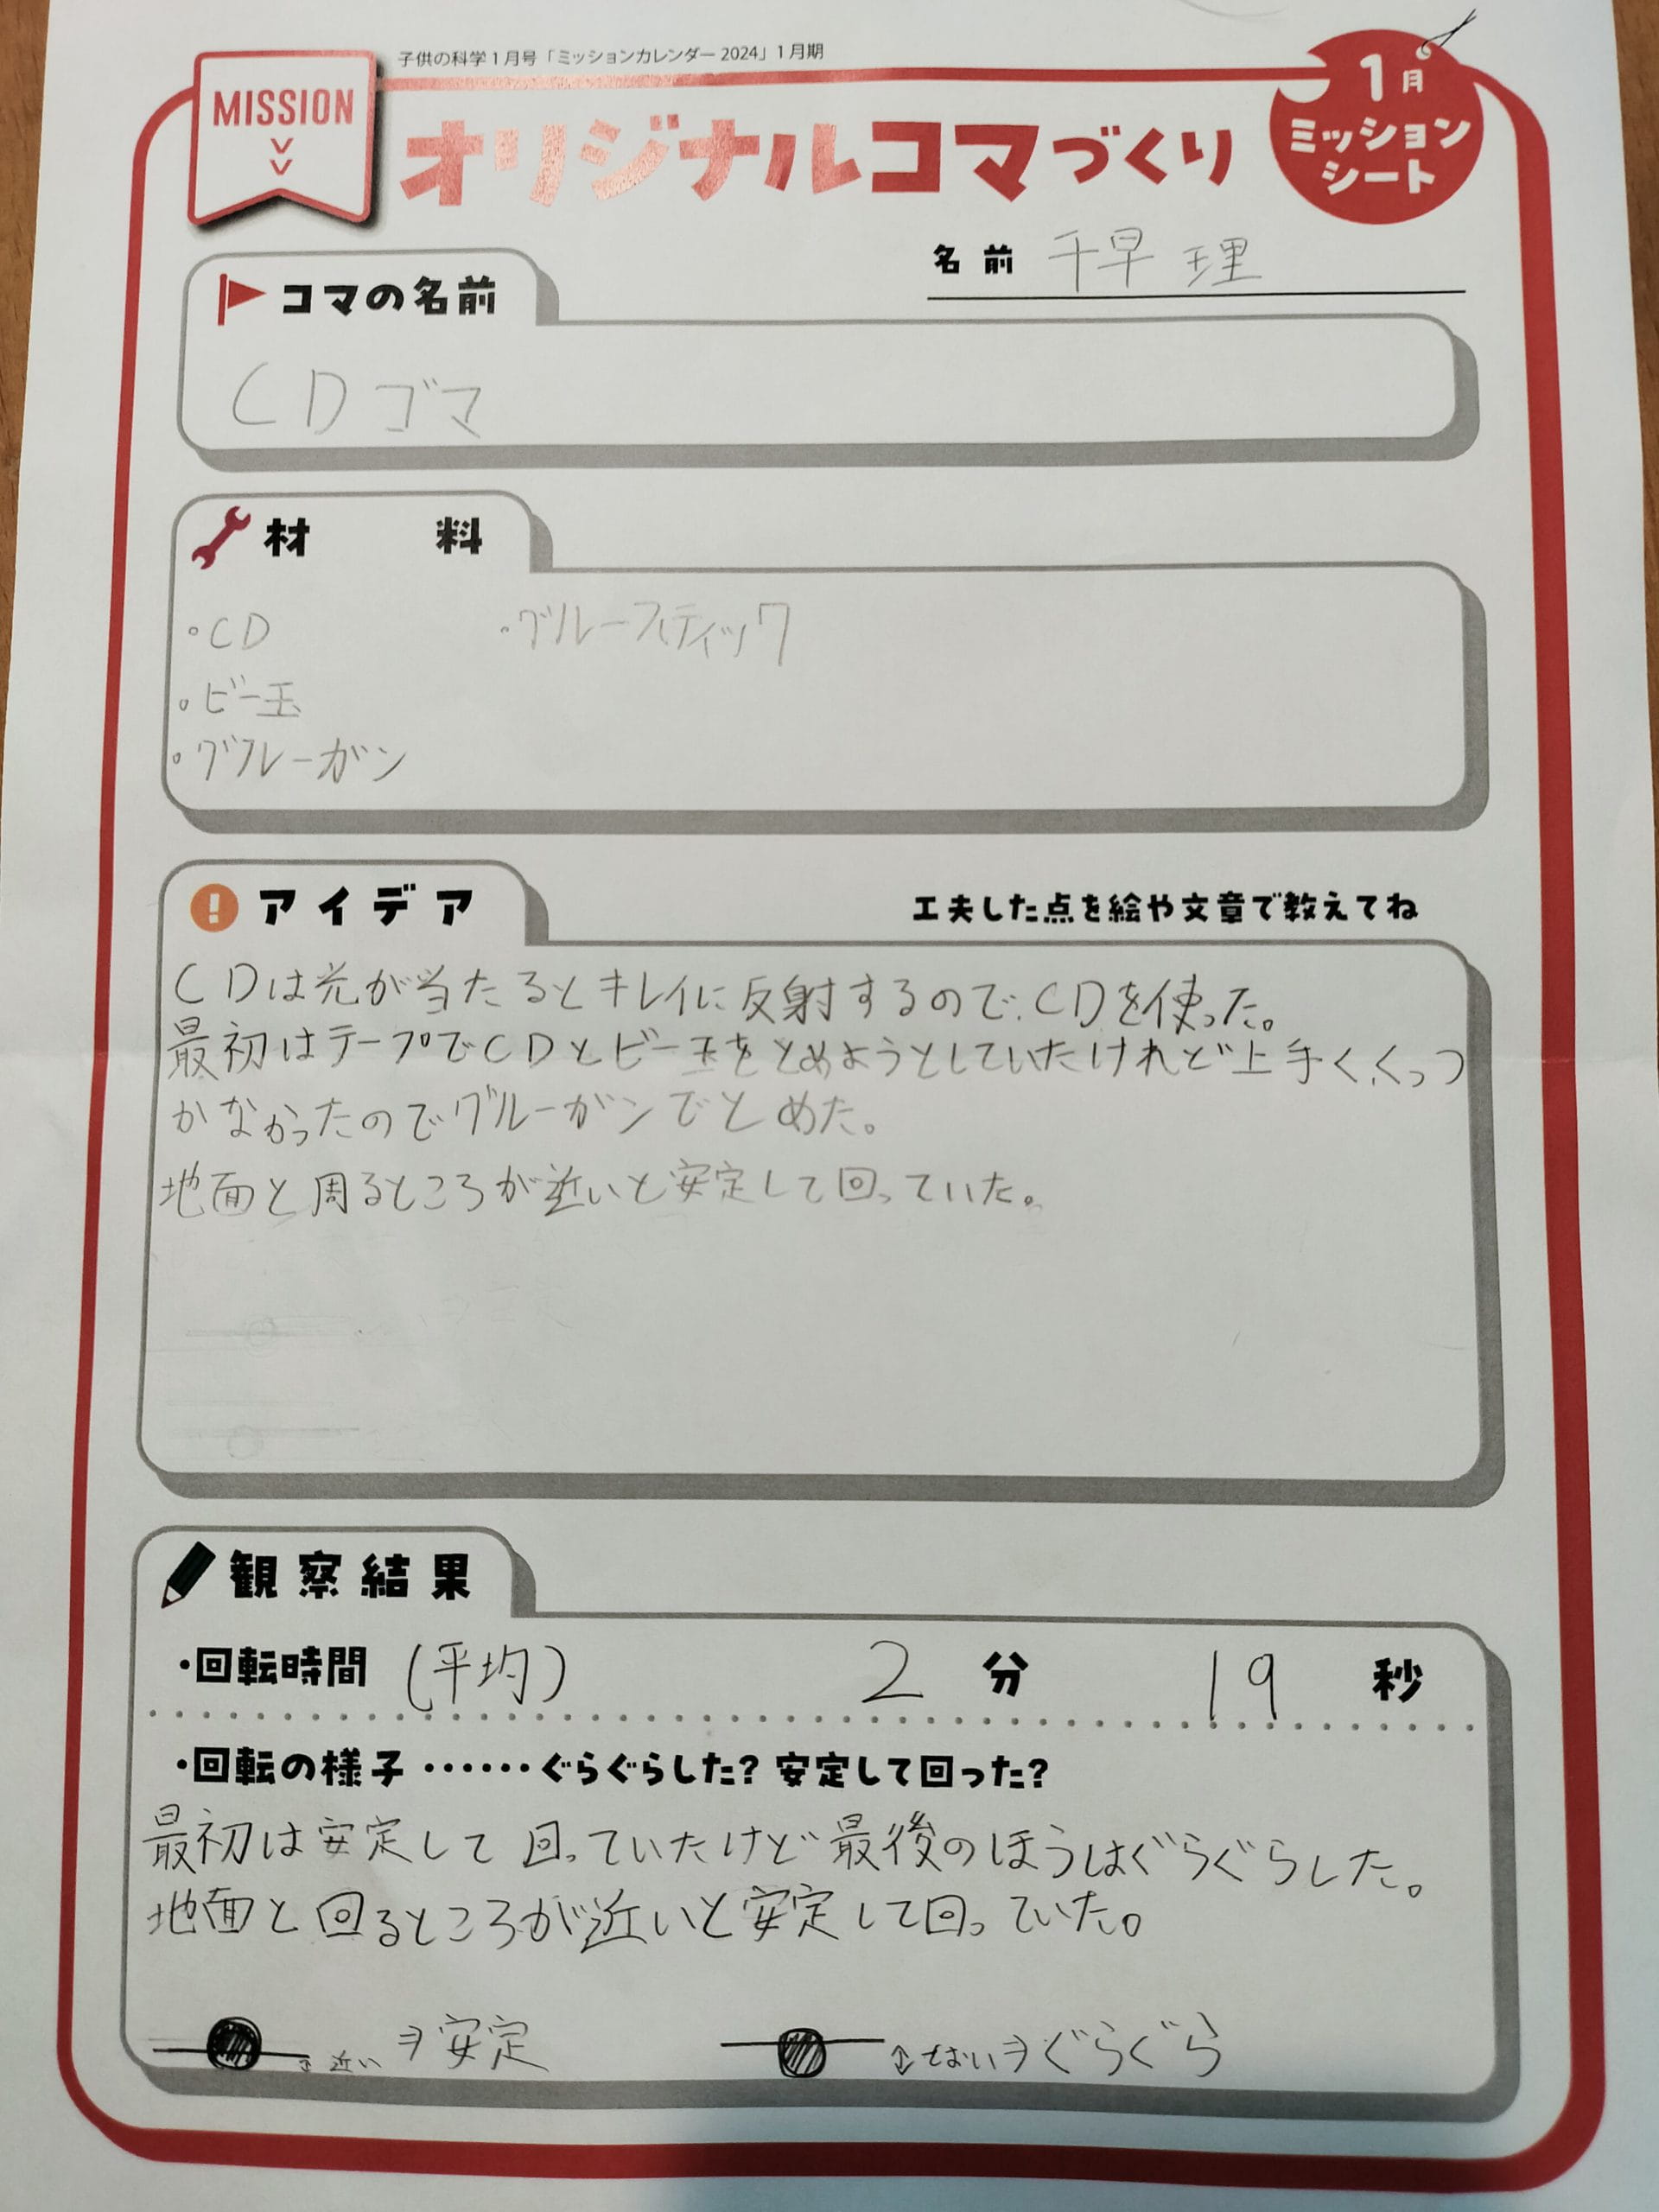 子供の科学1月号「ミッションカレンダー2024」1月期
MISSION
オリジナルコマづくり
1月
ミッション
シート
名前 千早 理
コマの名前
CDゴマ
材 料
・CD ・グルースティック
・ビー玉
・グルーガン
アイデア 工夫した点を絵や文章で教えてね
CDは光が当たるとキレイに反射するので、CDを使った。
最初はテープでCDとビー玉をとめようとしていたけれど上手く、くっつ
かなかったのでグルーガンでとめた。
地面と周るところが近いと安定して回っていた。
観察結果
・回転時間 (平均) 2 分 19 秒
・回転の様子……ぐらぐらした?安定して回った?
最初は安定して回っていたけど最後のほうはぐらぐらした。
地面と回るところが近いと安定して回っていた。
↕近い⇒安定 ↕とおい⇒ぐらぐら